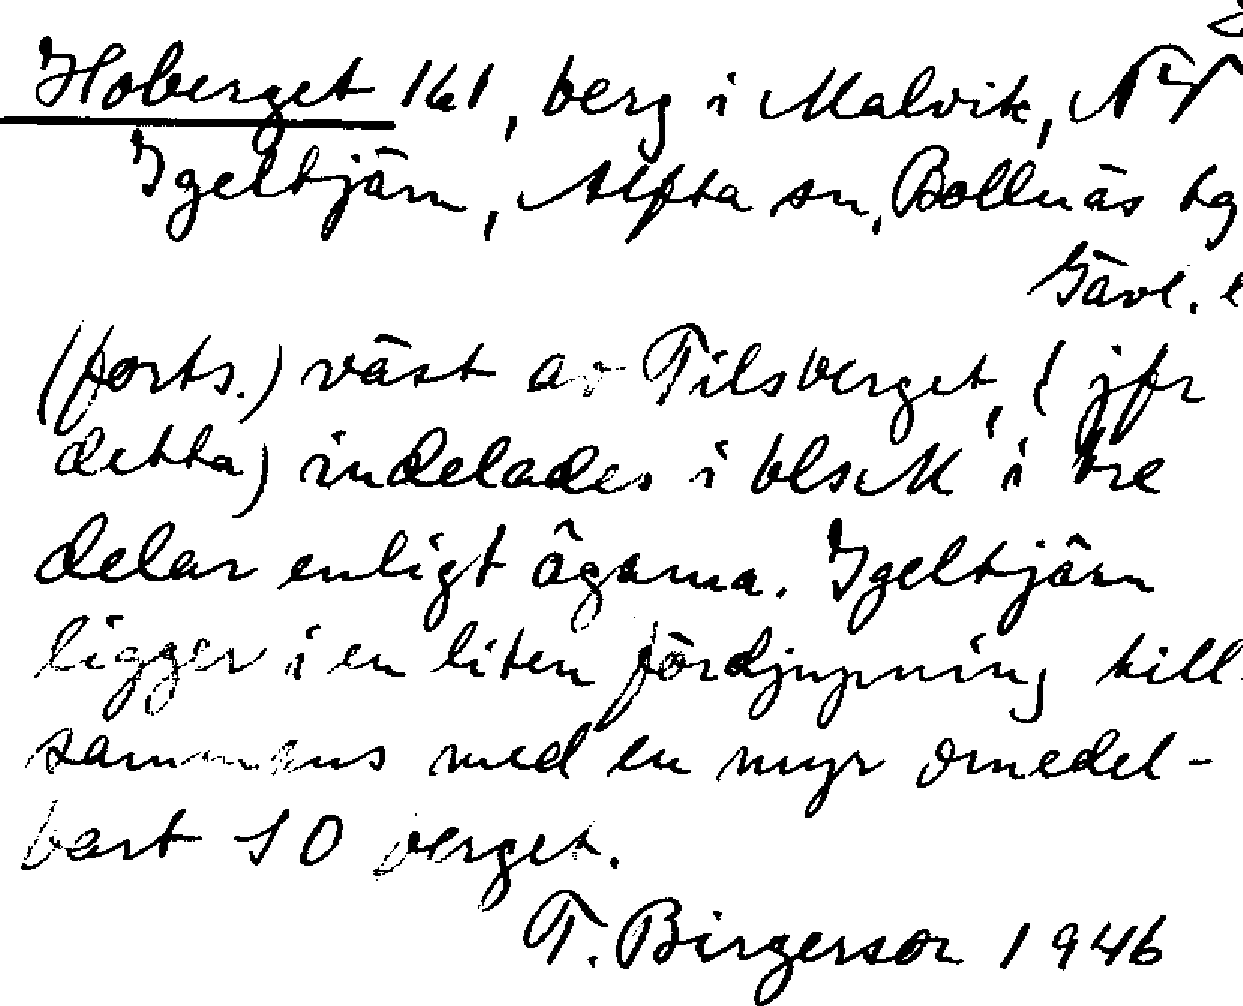 Hoberget 161, berg i Malvik, NV
Igeltjärn, Alfta sn, Bollnäs tg
Gävl. l
(forts.) väst av Tilsberget, (jfr
detta) indelades i
delar enligt ägarna. Igeltjärn
ligger i en liten fördjupning till
sammans med en myr omedel-
bart SO berget.
T. Birgerson 1946